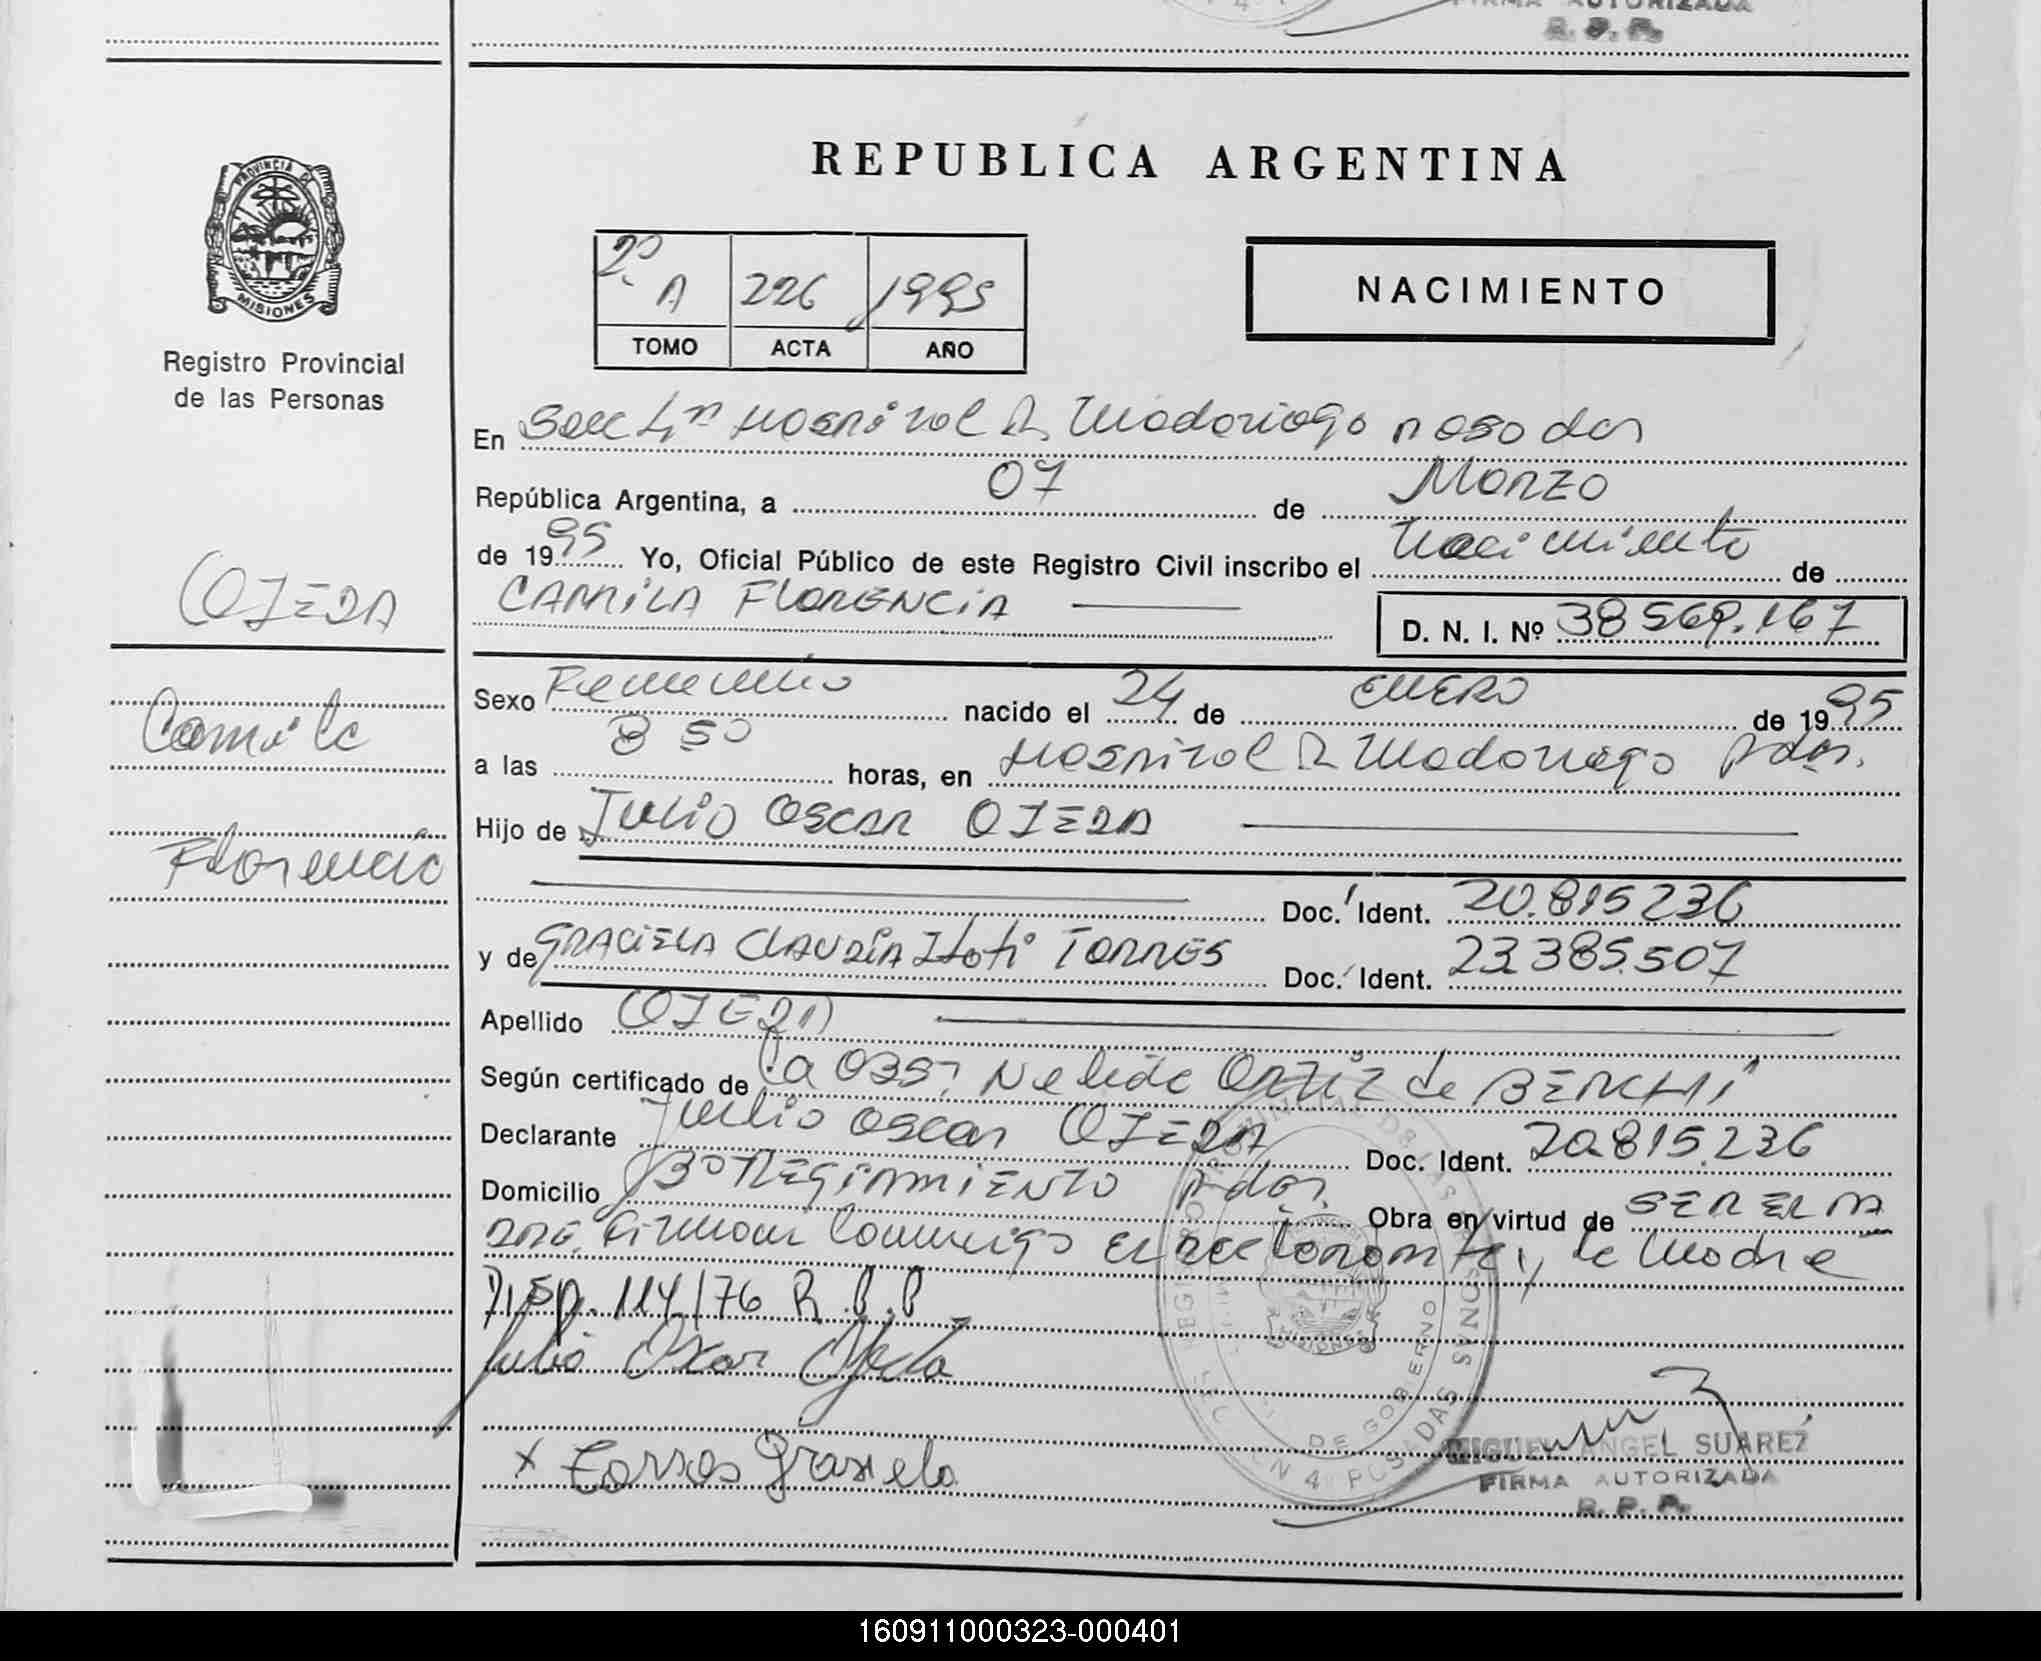 FIRMA AUTORIZADA
R. P. P.
PROVINCIA DE
MISIONES
Registro Provincial
de las Personas
OJEDA
Camila
Florencia
REPUBLICA ARGENTINA
2º A 226 1995
TOMO ACTA AÑO
NACIMIENTO
En Secc 4ta Hospital R. Madariaga posadas
República Argentina, a 07 de Marzo
de 1995 Yo, Oficial Público de este Registro Civil inscribo el Nacimiento de
CAMILA FLORENCIA
D. N. I. Nº 38569.167
Sexo Femenino nacido el 24 de ENERO de 1995
a las 8 50 horas, en Hospital R. Madariaga Pdas.
Hijo de JULIO OSCAR OJEDA
Doc. Ident. 20.815236
y de GRACIELA CLAUDIA Itati TORRES Doc. Ident. 23.385.507
Apellido OJEDA
Según certificado de la OBST. Nelida ORTIZ de BERCHI
Declarante Julio Oscar OJEDA Doc. Ident. 20.815.236
Domicilio Bº REGIMIENTO Pdas. Obra en virtud de SER EL PA
DRE. Firman Conmigo el declarante y la Madre
Disp. 114/76 R.P.P
Julio Oscar Ojeda
x Torres Grasiela
REGISTRO PROVINCIAL DE LAS PERSONAS
DE GOBIERNO
MISIONES
SECCION 4 POSADAS
MIGUEL ANGEL SUAREZ
FIRMA AUTORIZADA
R. P. P.
160911000323-000401